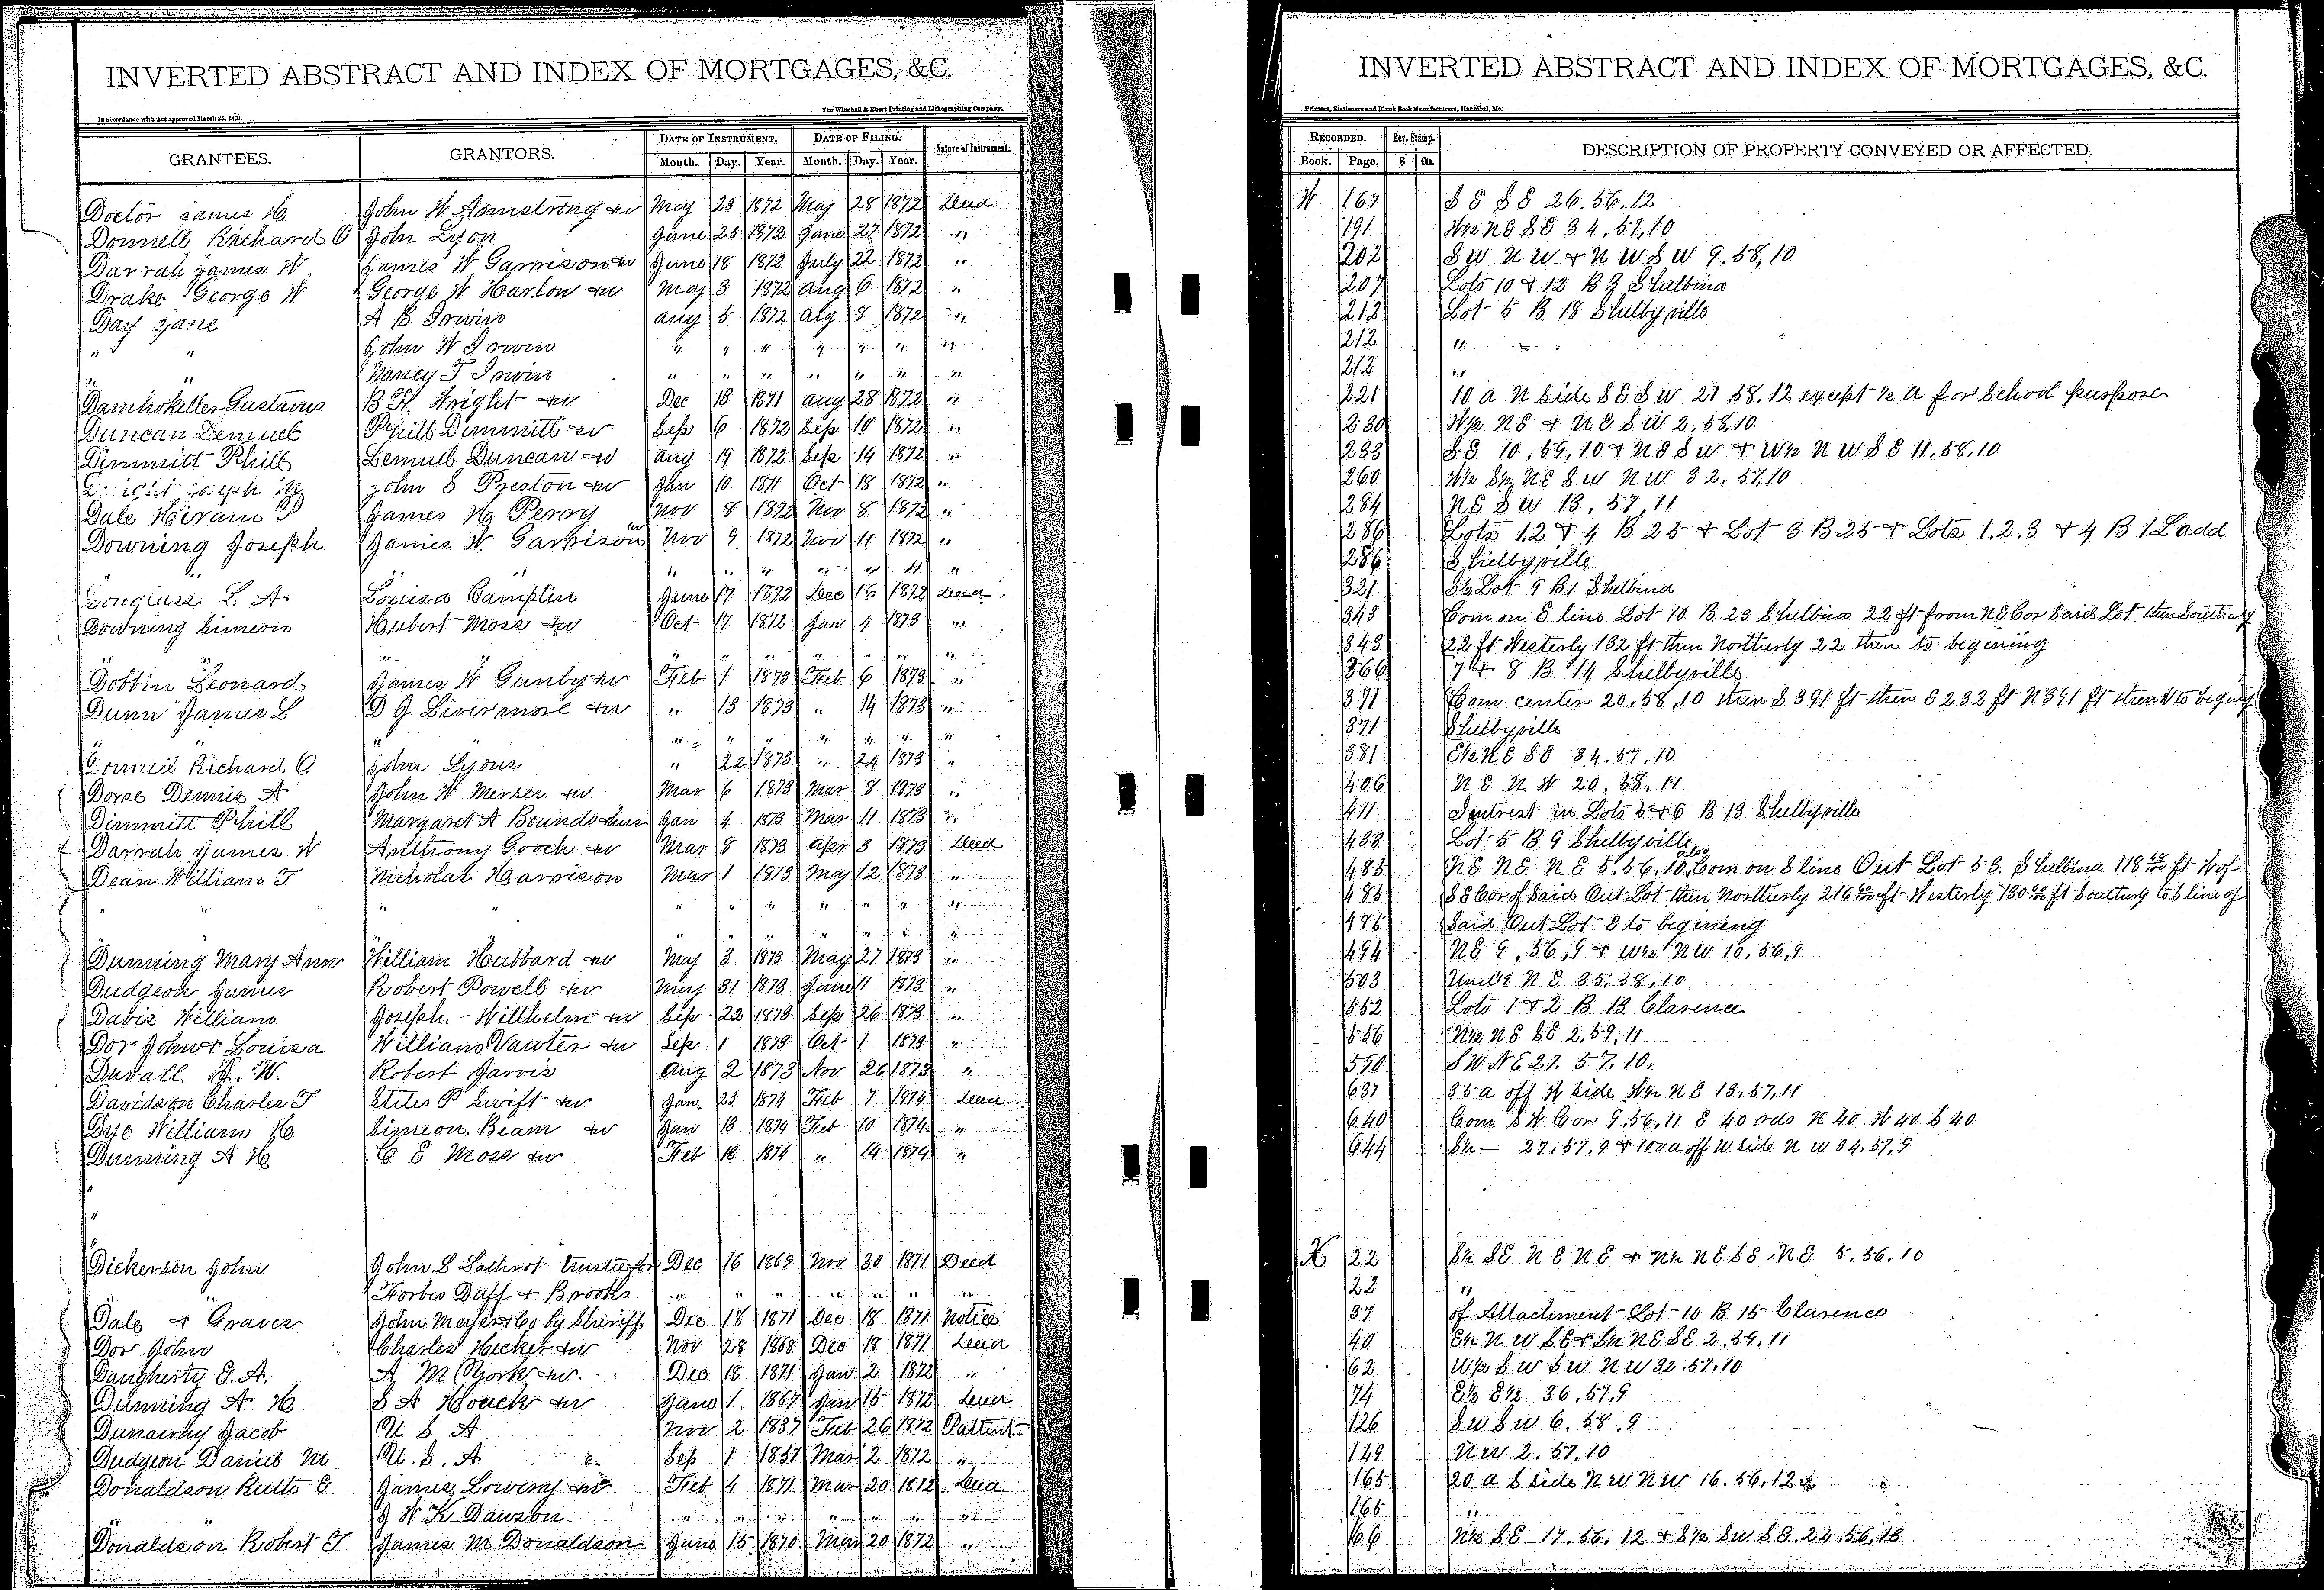 INVERTED ABSTRACT AND INDEX OF MORTGAGES, &C.
The Winchell & Ebert Printing and Lithographing Company,
In accordance with Act approved March 25, 1870.
GRANTEES. GRANTORS. DATE OF INSTRUMENT. DATE OF FILING. Nature of Instrument.
Month. Day. Year. Month. Day. Year.
Doctor James H John W Armstrong &w May 23 1872 May 28 1872 Deed
Donnell Richard C John Lyon June 25 1872 June 27 1872 "
Darrah James W James W Garrison &w June 18 1872 July 22 1872 "
Drake George W George W Harlow &w May 3 1872 Aug 6 1872 "
Day Jane A B Irwin Aug 5 1872 Aug 8 1872 "
" " John W Irwin " " " " " " "
" " Nancy T Irwin " " " " " " "
Damhokeller Gustavus B H Wright &w Dec 18 1871 Aug 28 1872 "
Duncan Lemuel Phill Dimmitt &w Sep 6 1872 Sep 10 1872 "
Dimmitt Phill Lemuel Duncan &w Aug 19 1872 Sep 14 1872 "
Joseph M John S Preston &w Jan 10 1871 Oct 18 1872 "
Dale Hiram P James H Perry Nov 8 1872 Nov 8 1872 "
Downing Joseph James W. Garrison &w Nov 9 1872 Nov 11 1872 "
" " " " " " " " "
Douglass L. A. Louisa Camplin June 17 1872 Dec 16 1872 Deed
Downing Simeon Hubert Moss &w Oct 17 1872 Jan 4 1873 "
" " " " " " " " "
Dobbin Leonard James W Gunby &w Feb 1 1873 Feb 6 1873 "
Dunn James L D J Livermore &w " 13 1873 " 14 1873 "
" " " " " " " "
Donnell Richard C John Lyons " 22 1873 " 24 1873 "
Dorse Dennis A John W Merser &w Mar 6 1873 Mar 8 1873 "
Dimmitt Phill Margaret A Bounds &hus Jan 4 1873 Mar 11 1873 "
Darrah James W Anthony Gooch &w Mar 8 1873 Apr 3 1873 Deed
Dean William T Nicholas Harrison Mar 1 1873 May 12 1873 "
" " " " " " " " " "
" " " " " " "
Dunning Mary Ann William Hubbard &w May 3 1873 May 27 1873 "
Dudgeon James Robert Powell &w May 31 1873 June 11 1873 "
Davis William Joseph Willhelm &w Sep 22 1873 Sep 26 1873 "
Dor John & Louisa William Vawter &w Sep 1 1873 Oct 1 1873 "
Duvall W. Robert Jarvis Aug 2 1873 Nov 26 1873 "
Davidson Charles T Stiles P Swift &w Jan. 23 1874 Feb 7 1874 Deed
Dye William H Simeon Beam &w Jan 13 1874 Feb 10 1874 "
Dunning A H C E Moss &w Feb 13 1874 " 14 1874 "
"
"
Dickerson John John S Lathrop trustee for Dec 16 1869 Nov 30 1871 Deed
Forbes Duff & Brooks " " " " " " "
Dale & Graves John Meyers & Co by Sheriff Dec 18 1871 Dec 18 1871 Notice
Dor John Charles Hecker &w Nov 28 1868 Dec 18 1871 Deed
Daugherty E. A. A M York &w Dec 18 1871 Jan 2 1872 "
Dunning A H S A Houck &w June 1 1867 Jan 15 1872 Deed
Dunaway Jacob U S A Nov 2 1837 Feb 26 1872 Pattent
Dudgeon Daniel M U. S. A Sep 1 1857 Mar 2 1872 "
Donaldson Ruth E James Lowery &w Feb 4 1871 Mar 20 1872 Deed
" J W K Dawson " " " " " " "
Donaldson Robert T James M Donaldson June 15 1870 Mar 20 1872 "
INVERTED ABSTRACT AND INDEX OF MORTGAGES, &C.
Printers, Stationers and Blank Book Manufacturers, Hannibal, Mo.
RECORDED. Rev. Stamp. DESCRIPTION OF PROPERTY CONVEYED OR AFFECTED.
Book. Page. $ Cts.
W 167 S E S E 26. 56. 12
191 W½ N E S E 34, 57, 10
202 S W N W & N W S W 9. 58, 10
207 Lots 10 & 12 B 3 Shelbina
212 Lot 5 B 18 Shelbyville
212 "
212 "
221 10 a N side S E S W 21 58. 12 except ½ a for School purpose
230 W½ N E & N E S W 2, 58, 10
233 S E 10. 59, 10 & N E S W & W½ N W S E 11. 58. 10
260 W½ S½ N E S W N W 32. 57, 10
284 N E S W 13. 57, 11
286 Lots 1,2 & 4 B 25 & Lot 3 B 25 & Lots 1, 2, 3 & 4 B 1 L add
286 Shelbyville
321 S½ Lot 9 B 1 Shelbina
343 Com on E line Lot 10 B 23 Shelbina 22 ft from N E Cor said Lot then Southerly
343 22 ft Westerly 132 ft then Northerly 22 then to begining
366 7 & 8 B 14 Shelbyville
371 Com center 20, 58, 10 then S 391 ft then E 232 ft N 391 ft then W to begining
371 Shelbyville
381 E½ N E S E 34. 57, 10
406 N E N W 20. 58. 11
411 Intrest in Lots 5 & 6 B 13 Shelbyville
433 Lot 5 B 9 Shelbyville
485 N E N E N E 5. 56. 10 also Com on S line Out Lot 53. Shelbina 118 ft W of
485 S E Cor of Said Out Lot then Northerly 216 ft Westerly 130 ft Southerly to S line of
485 Said Out Lot E to begining
494 N E 9, 56, 9 & W½ N W 10, 56, 9
503 Und ½ N E 35, 58, 10
552 Lots 1 & 2 B 13 Clarence
556 N½ N E S E 2, 59, 11
590 S W. N E 27. 57. 10.
637 35 a off W side W½ N E 13, 57, 11
640 Com S W Cor 9, 56, 11 E 40 rds N 40 W 40 S 40
644 S½ — 27. 57. 9 & 100 a off W side N W 34. 57, 9
X 22 S½ S E N E N E & N½ N E S E N E 5. 56. 10
22 "
37 of Attachment Lot 10 B 15 Clarence
40 E½ N W S E & S½ N E S E 2. 59. 11
62 W½ S W S W N W 32. 57. 10
74 E½ E½ 36. 57. 9
126 S W S W 6. 58. 9
149 N W 2. 57. 10
165 20 a S side N W N W 16. 56, 12
165 "
166 N½ S E 17. 56. 12 & S½ S W S E 24. 56. 13